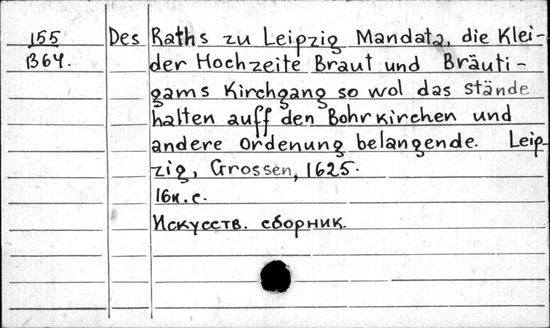 155 Des Raths zu Leipzig Mandata, die Klei-
B64. der Hochzeite Braut und Bräuti-
gams Kirchgang so wol das stände
halten auff den Bohrkirchen und
andere Ordenung belangende. Leip-
zig, Grossen, 1625.
16н.с.
Искусств. сборник.